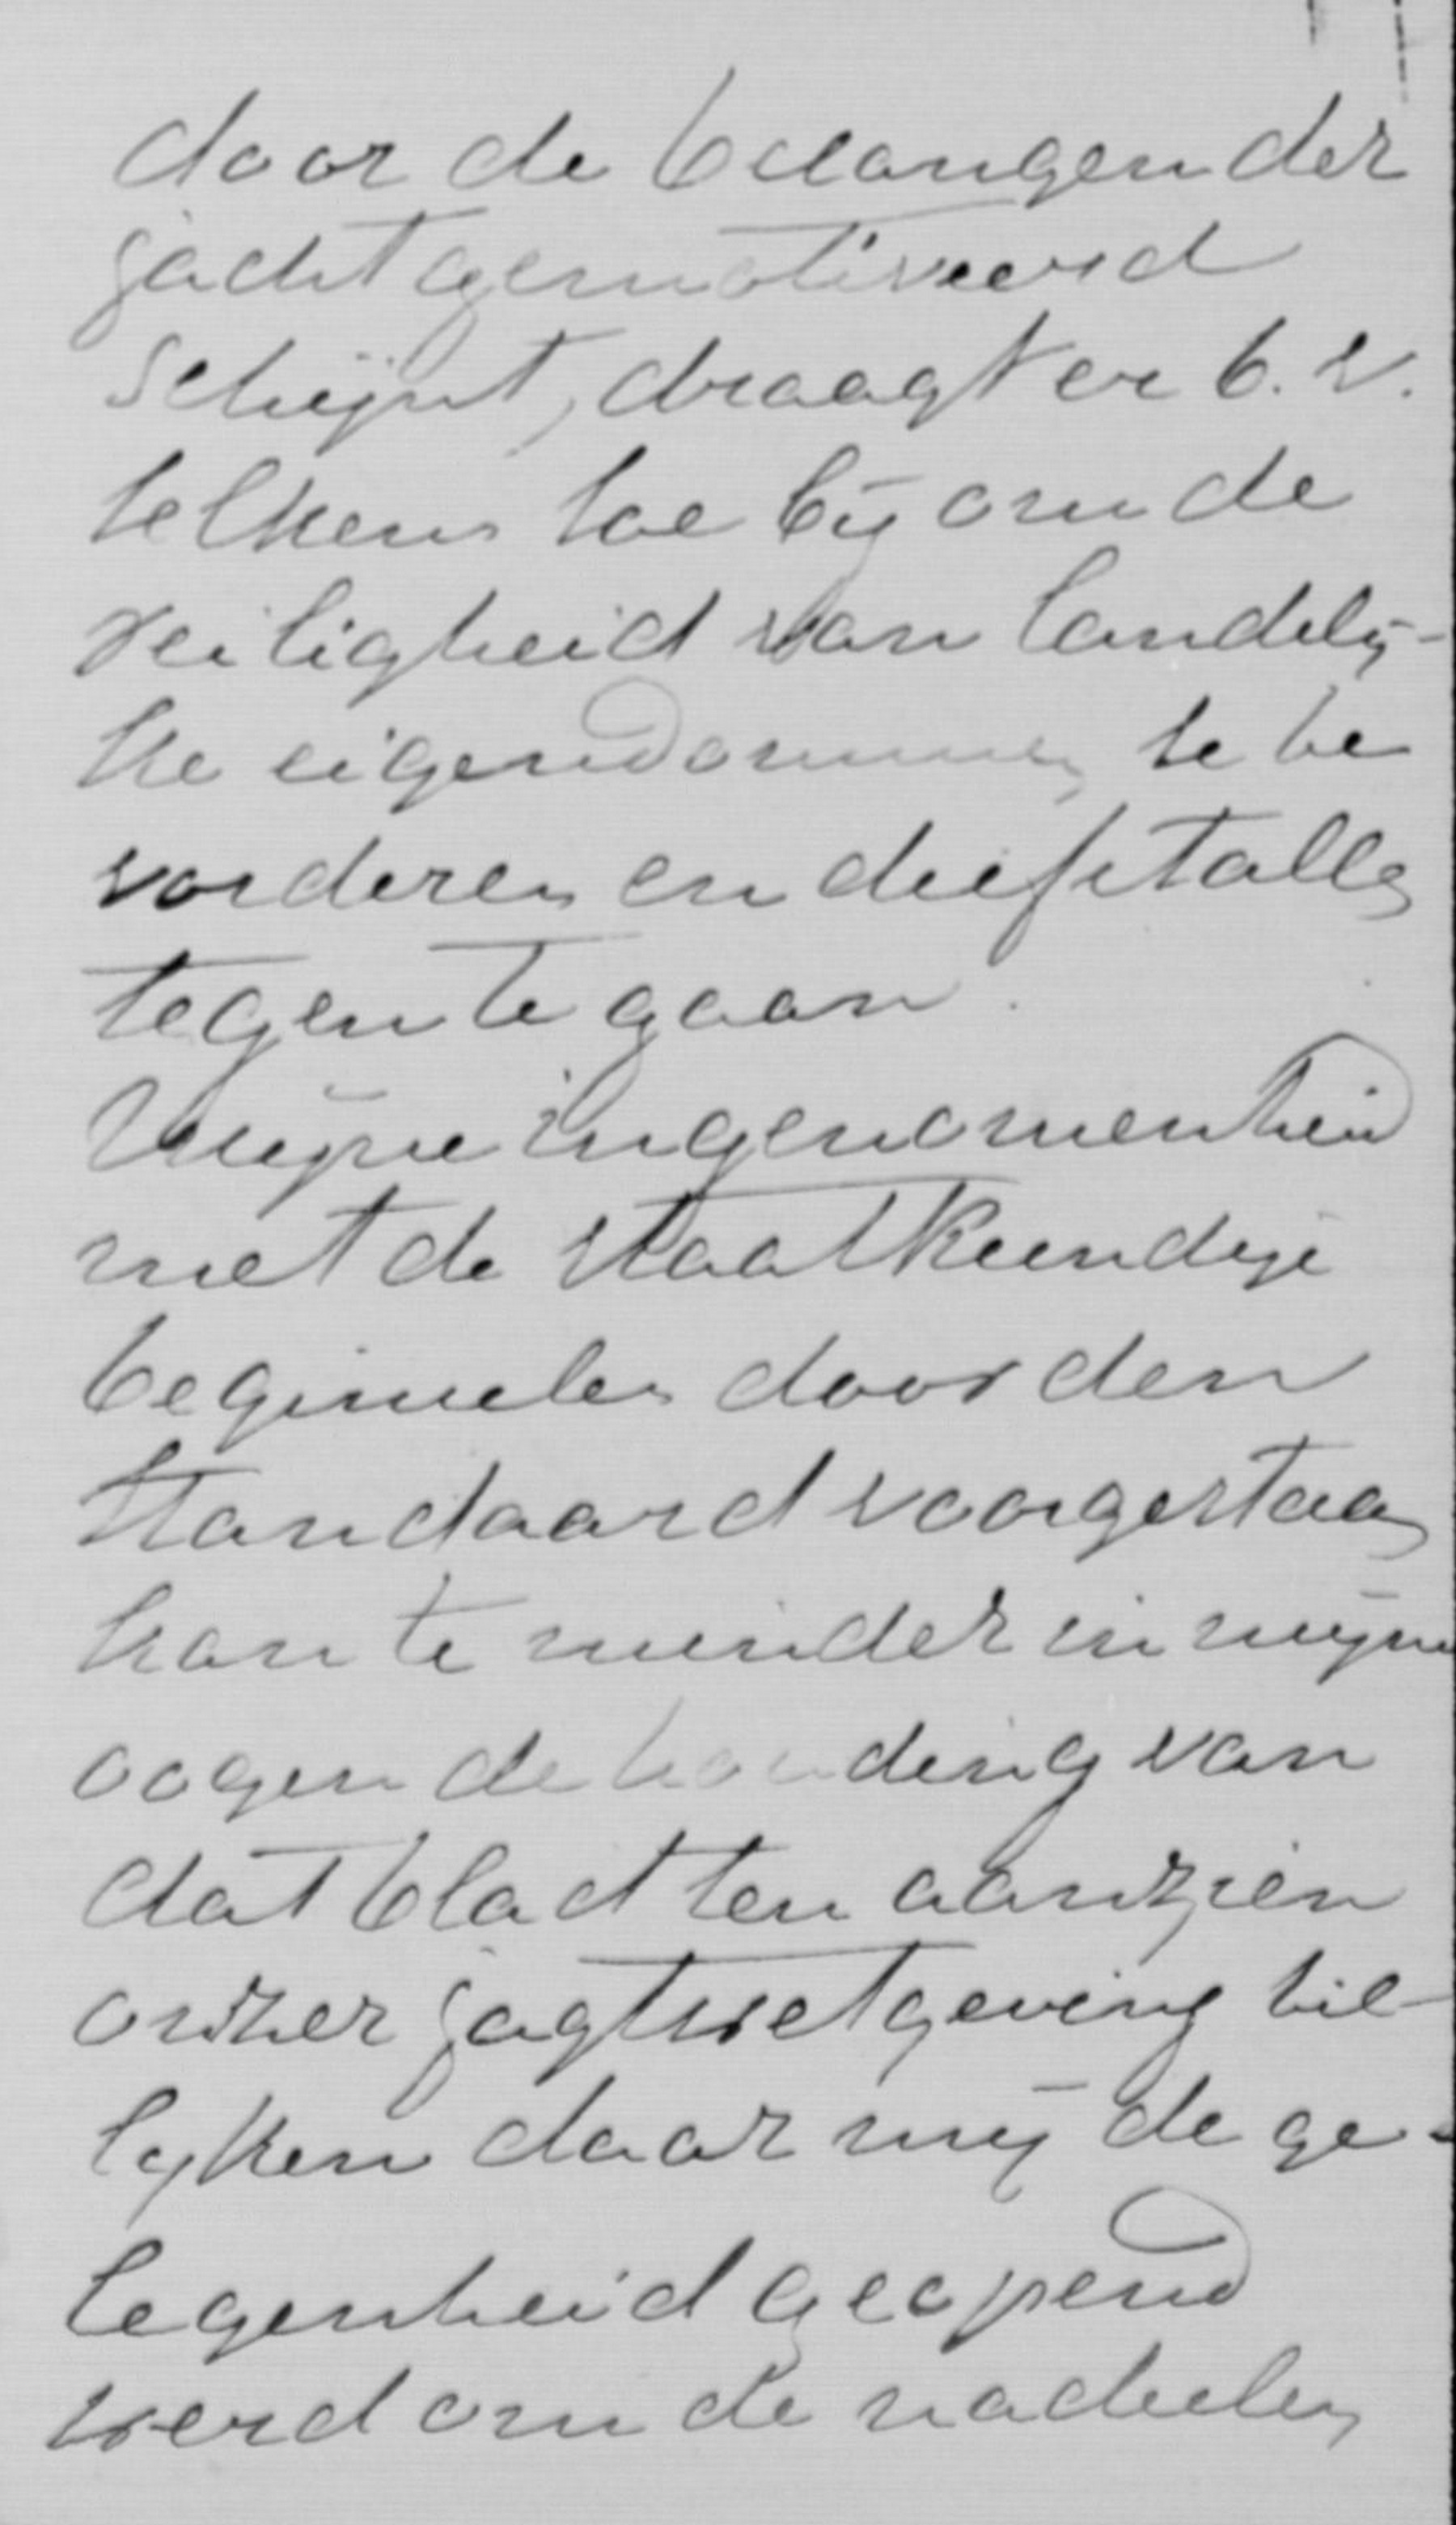 door de belangen der
jacht gemotiveerd
schijnt, draagt er b.v.
telkens toe bij om de
veiligheid van landelij-
ke eigendommen te be
vorderen en diefstallen
tegen te gaan.
Mijne ingenomenheid
met de staatkundige
beginselen door den
Standaard voorgestaan
kan te minder in mijne
oogen de houding van
dat blad ten aanzien
onzer jagtwetgeving bil-
lyken daar mij de ge-
legenheid geopend
werd om de nadeelen